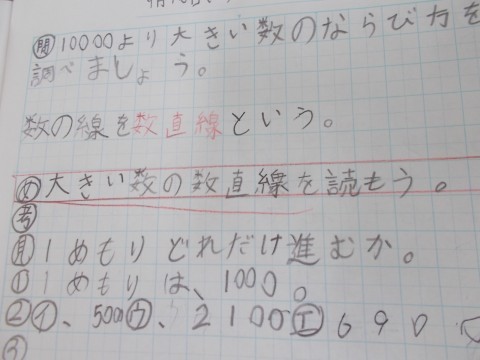 問 10000より大きい数のならび方を
調べましょう。
数の線を数直線という。
め 大きい数の数直線を読もう。
考
見 1めもりどれだけ進むか。
① 1めもりは、1000。
② イ、5000 ウ、2100 エ 690
③